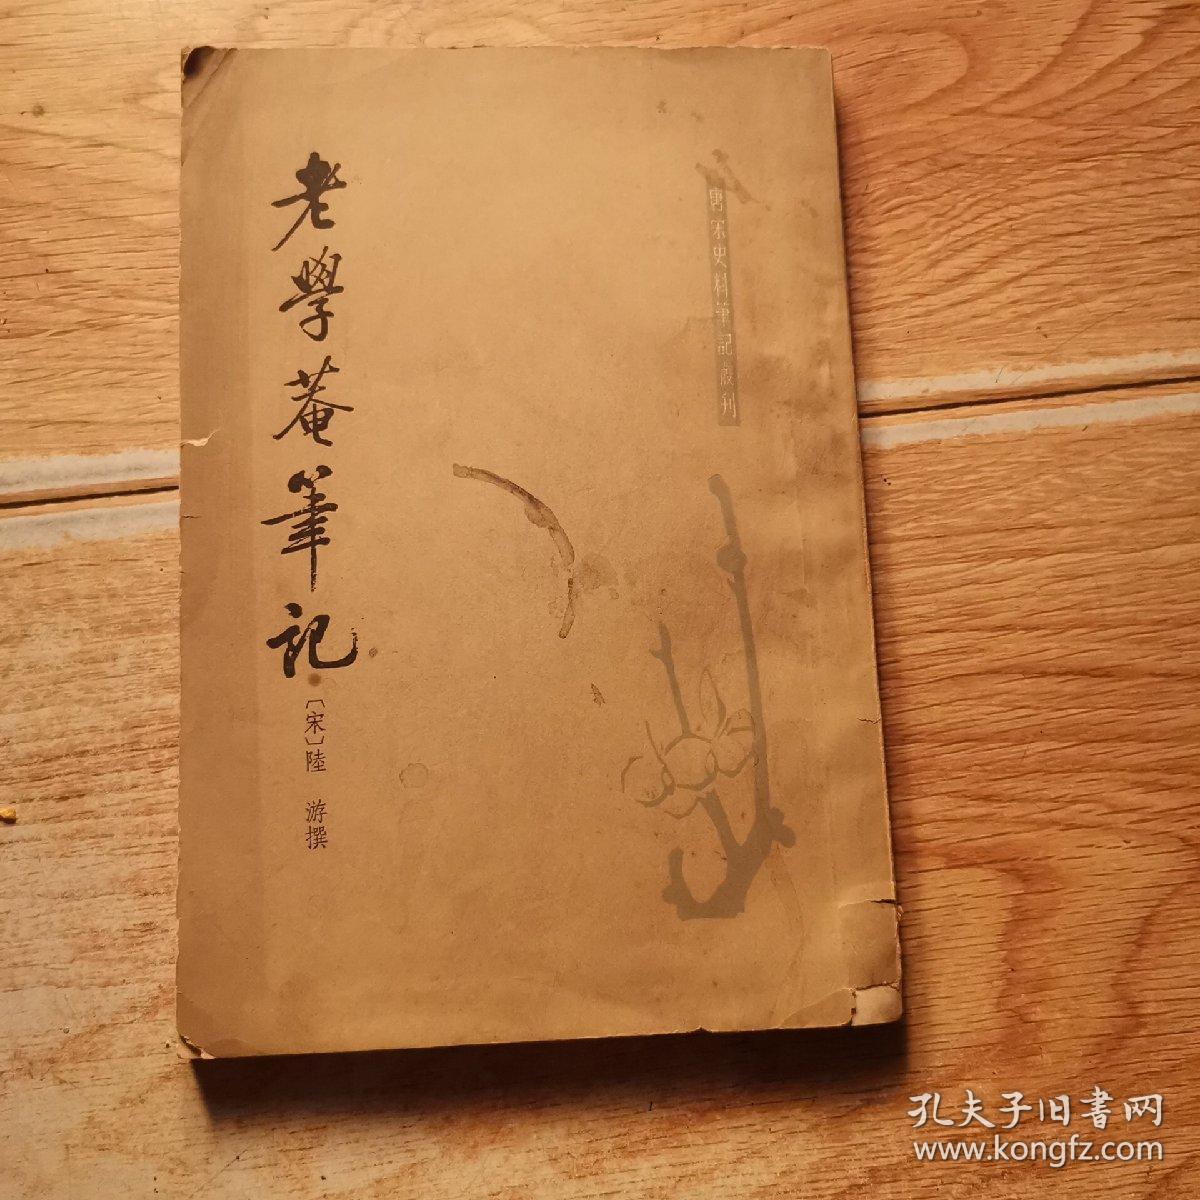 唐宋史料筆記叢刊
老學菴筆記
〔宋〕陸 游撰
孔夫子旧書网
www.kongfz.com